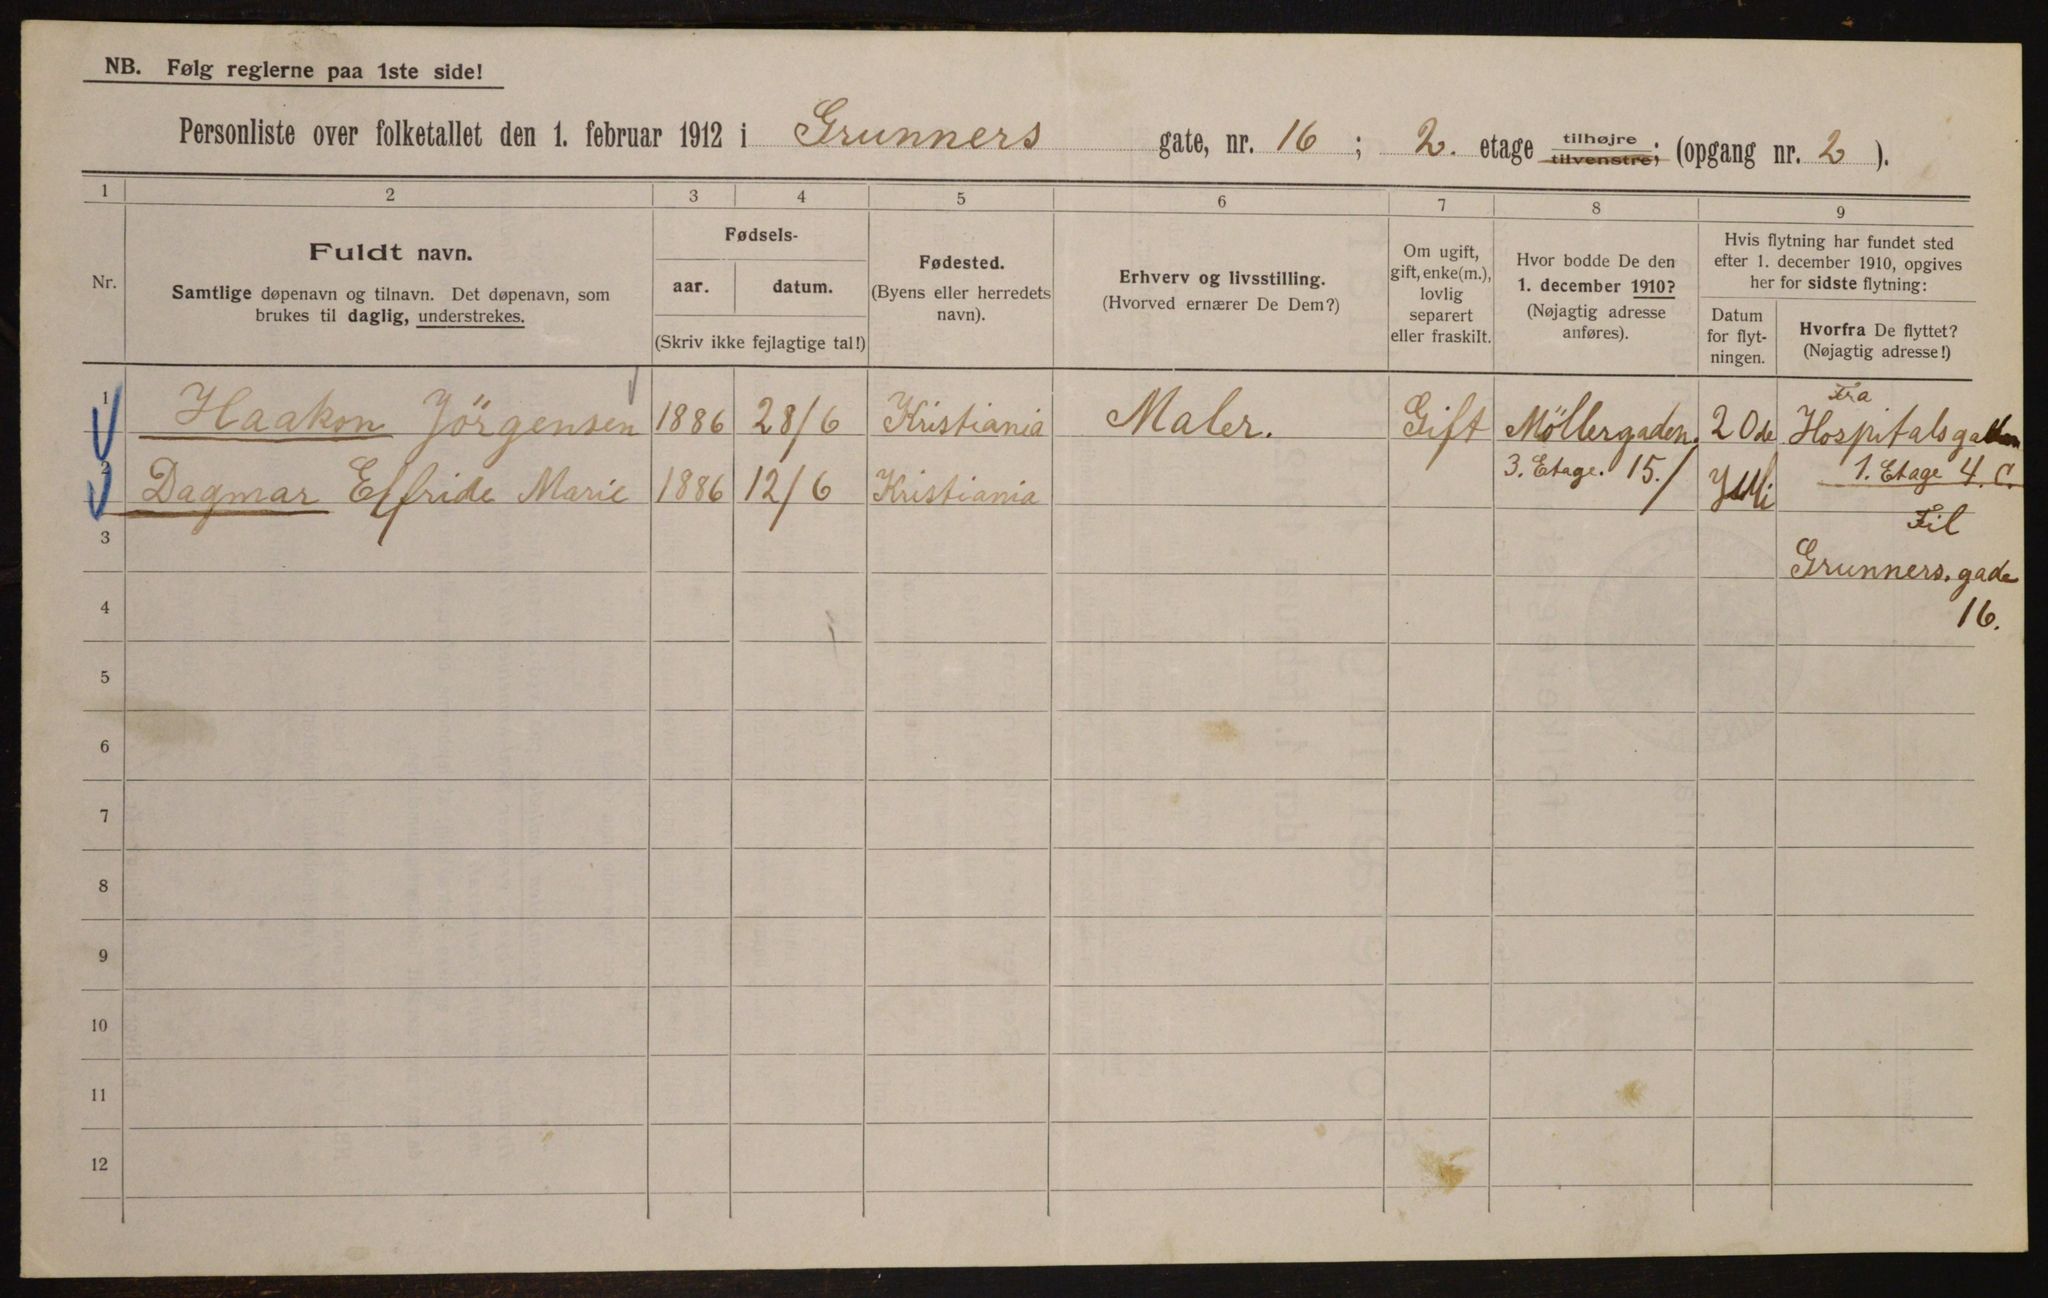 NB. Følg reglerne paa 1ste side!
Personliste over folketallet den 1. februar 1912 i Grunners gate, nr. 16 ; 2. etage tilhøjre tilvenstre; (opgang nr. 2 ).
1 2 3 4 5 6 7 8 9
Nr.
Fuldt navn.
Samtlige døpenavn og tilnavn. Det døpenavn, som
brukes til daglig, understrekes.
Fødsels-
aar. datum.
(Skriv ikke fejlagtige tal!)
Fødested.
(Byens eller herredets
navn).
Erhverv og livsstilling.
(Hvorved ernærer De Dem?)
Om ugift,
gift, enke(m.),
lovlig
separert
eller fraskilt.
Hvor bodde De den
1. december 1910?
(Nøjagtig adresse
anføres).
Hvis flytning har fundet sted
efter 1. december 1910, opgives
her for sidste flytning:
Datum
for flyt-
ningen.
Hvorfra De flyttet?
(Nøjagtig adresse!)
Fra
1 Haakon Jörgensen 1886 28/6 Kristiania Maler. Gift Möllergaden. 20de Hospitalsgaden
3. Etage. 15./ 1. Etage 4. C.
2 Dagmar Elfride Marie 1886 12/6 Kristiania Juli
Til
3
Grunners. gade
4
16.
5
6
7
8
9
10
11
12